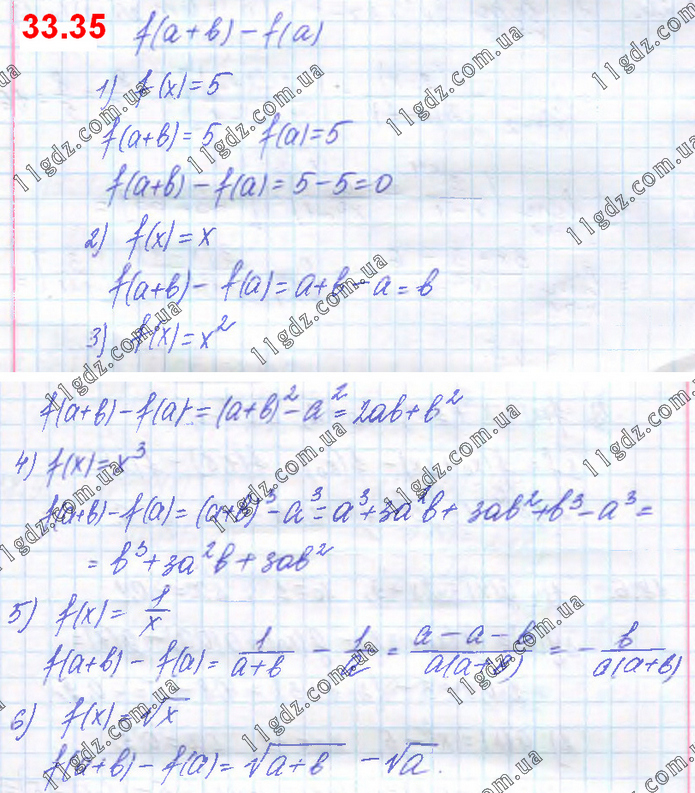 33.35 f(a+b) - f(a)
1) f(x) = 5
f(a+b) = 5 f(a) = 5
f(a+b) - f(a) = 5 - 5 = 0
2) f(x) = x
f(a+b) - f(a) = a + b - a = b
3) f(x) = x²
f(a+b) - f(a) = (a+b)² - a² = 2ab + b²
4) f(x) = x³
f(a+b) - f(a) = (a+b)³ - a³ = a³ + 3a²b + 3ab² + b³ - a³ =
= b³ + 3a²b + 3ab²
5) f(x) = 1/x
f(a+b) - f(a) = 1/(a+b) - 1/a = (a - a - b)/(a(a+b)) = - b/(a(a+b))
6) f(x) = √x
f(a+b) - f(a) = √(a+b) - √a.
11gdz.com.ua